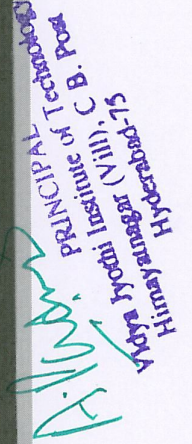 PRINCIPAL
Vidya Jyothi Institute of Technology
Himayatnagar (Vill), C. B. Post
Hyderabad-75